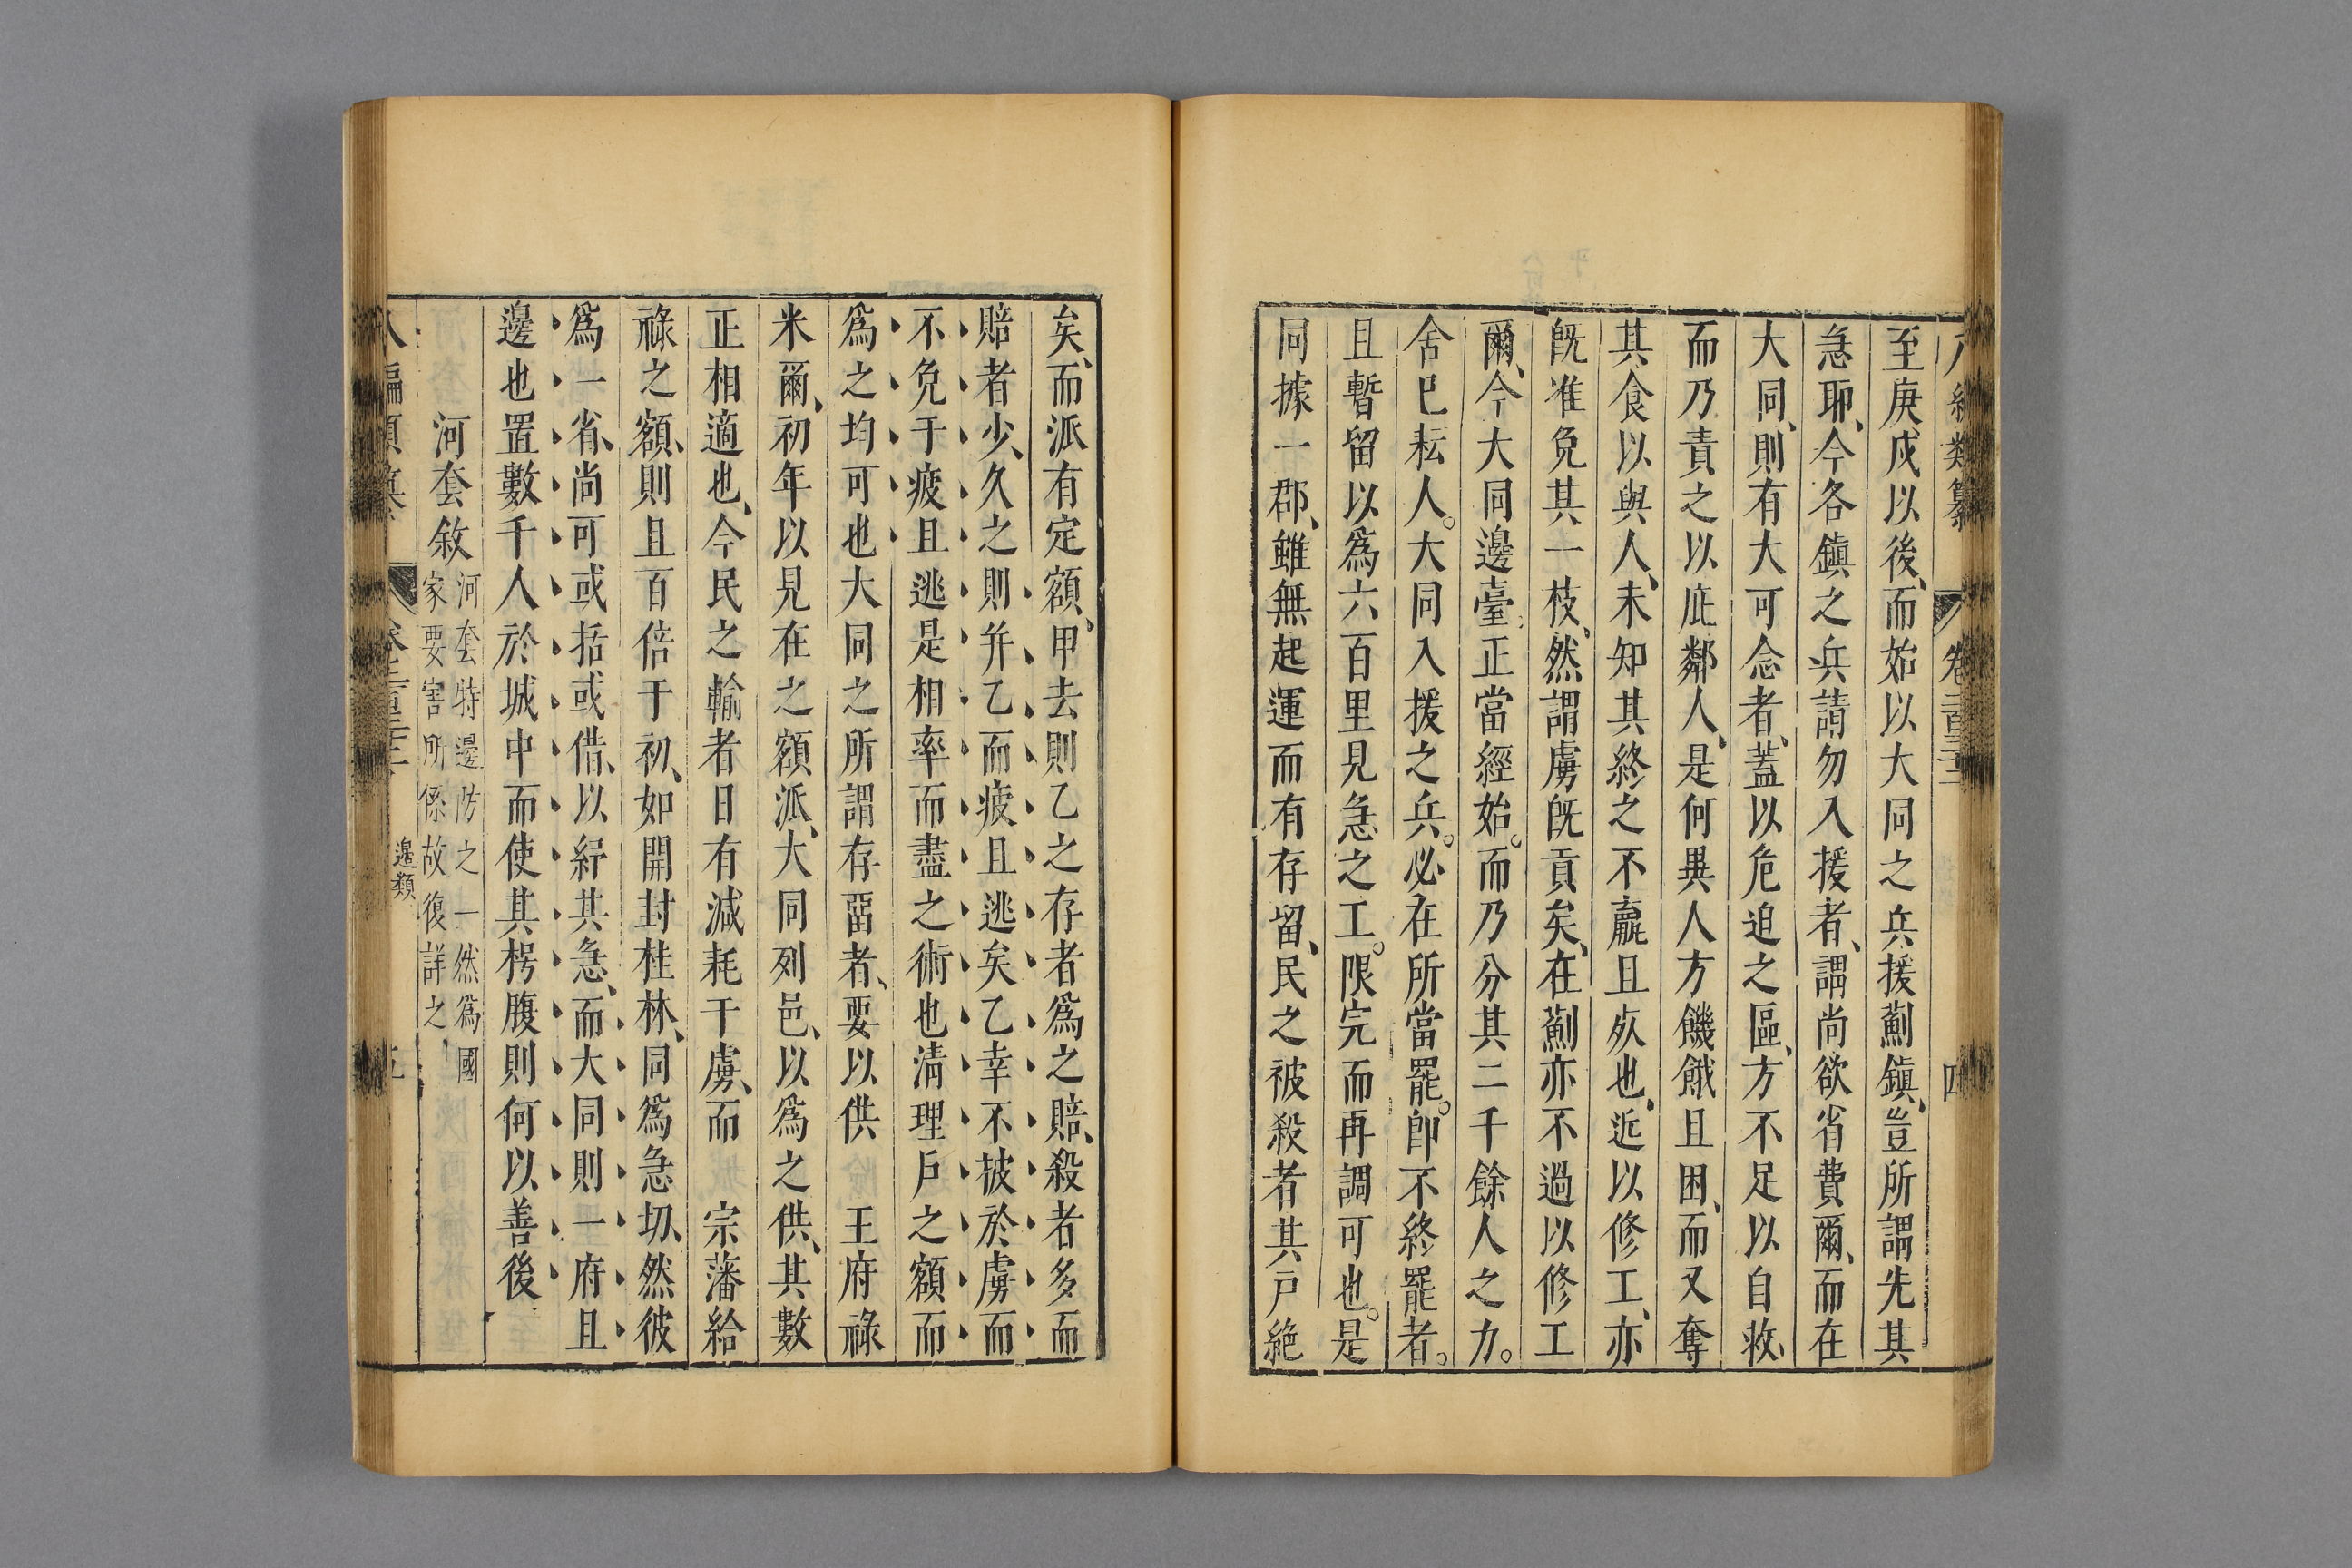 八編類纂 卷二百三十二 四
至庚戌以後、而始以大同之兵援薊鎮、豈所謂先其
急耶、今各鎮之兵請勿入援者、謂尚欲省費爾、而在
大同、則有大可念者、蓋以危迫之區、方不足以自救、
而乃責之以庇鄰人、是何異人方饑餓且困、而又奪
其食以與人、未知其終之不羸且仆也、近以修工、亦
旣准免其一枝、然謂虜旣貢矣、在薊亦不過以修工
爾、今大同邊臺、正當經始。而乃分其二千餘人之力。
舍巳耘人。大同入援之兵。必在所當罷。卽不終罷者。
且暫留以爲六百里見急之工。限完而再調可也。是
同據一郡、雖無起運而有存留、民之被殺者其戸絶
矣、而派有定額、甲去則乙之存者爲之賠、殺者多而
賠者少、久之則并乙而疲且逃矣乙幸不披於虜而
不免于疲且逃是相率而盡之術也淸理戸之額而
爲之均可也大同之所謂存畱者、要以供 王府祿
米爾、初年以見在之額派、大同列邑、以爲之供、其數
正相適也、今民之輸者日有減耗于虜、而 宗藩給
祿之額、則且百倍于初、如開封桂林、同爲急切、然彼
爲一省、尚可或括或借、以紓其急、而大同則一府且
邊也置數千人於城中而使其枵腹則何以善後
河套敘 河套特邊防之一然爲國
家要害所係故復詳之
八編類纂 邊類 五